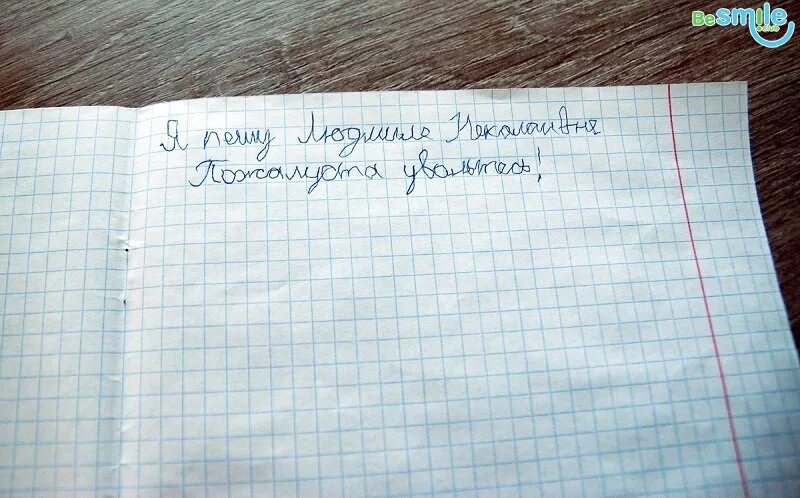 BeSmile.club
Я пешу Людмиле Неколаивня
Пожалуста увольтесь!